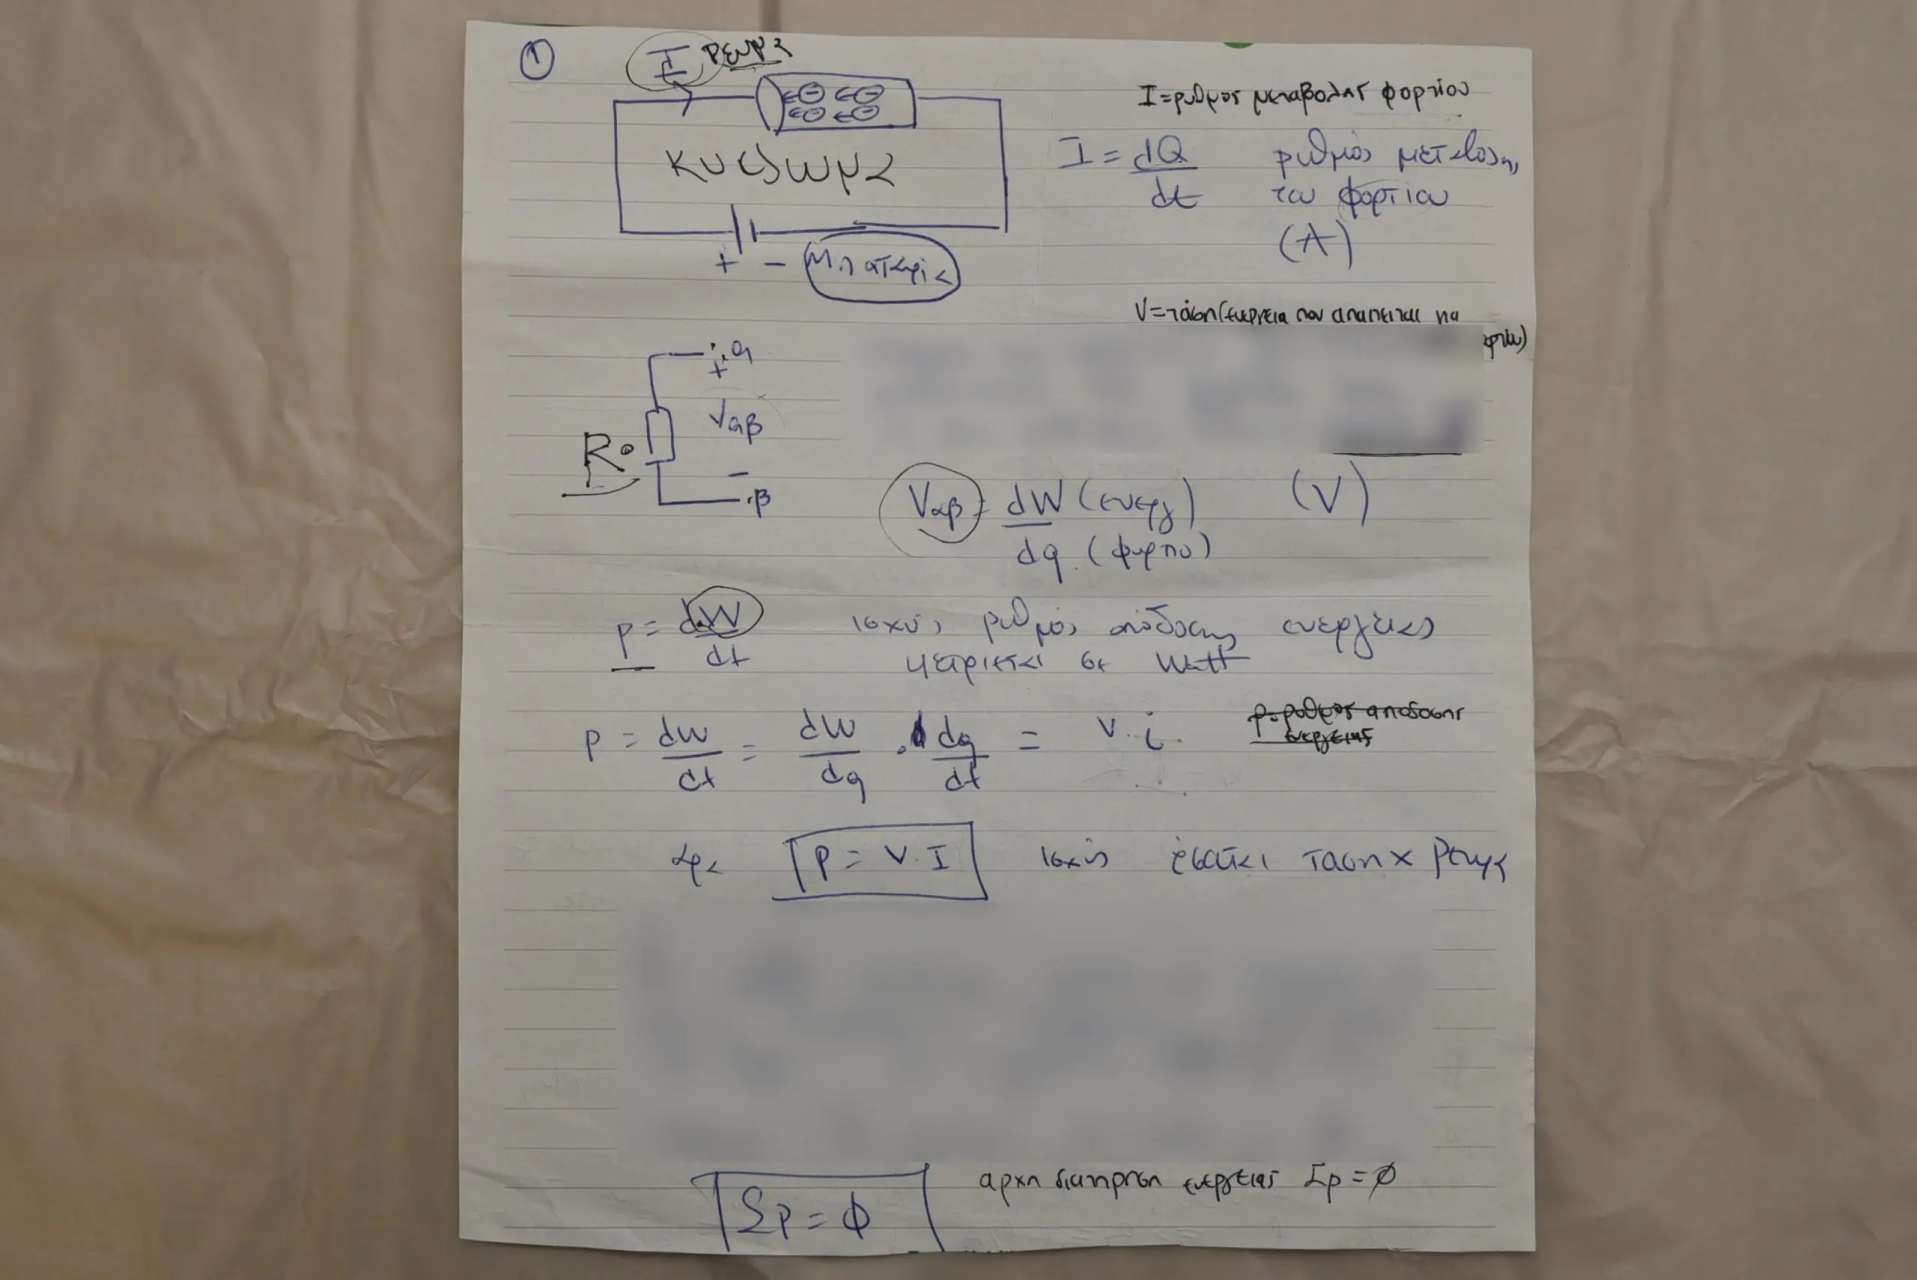 1
I ρευμα
I=ρυθμος μεταβολης φορτιου
κυκλωμα
I = dQ/dt ρυθμός μεταβολης
του φορτιου
(A)
+ - Μπαταρια
V=ταση(ενεργεια που απαιτειται να
+ α
Vαβ
R
- β
Vαβ = dW (ενεργ) / dq (φορτιο) (V)
p = dW/dt ισχύς ρυθμός απόδοσης ενεργειας
μετριεται σε Watt
p = dW/dt = dW/dq . dq/dt = v.i.
p=ρυθμος αποδοσης
ενεργειας
αρα P = V.I ισχύς ταση x ρευμα
αρχη διατηρηση ενεργειας Σp=∅
Σp = ∅